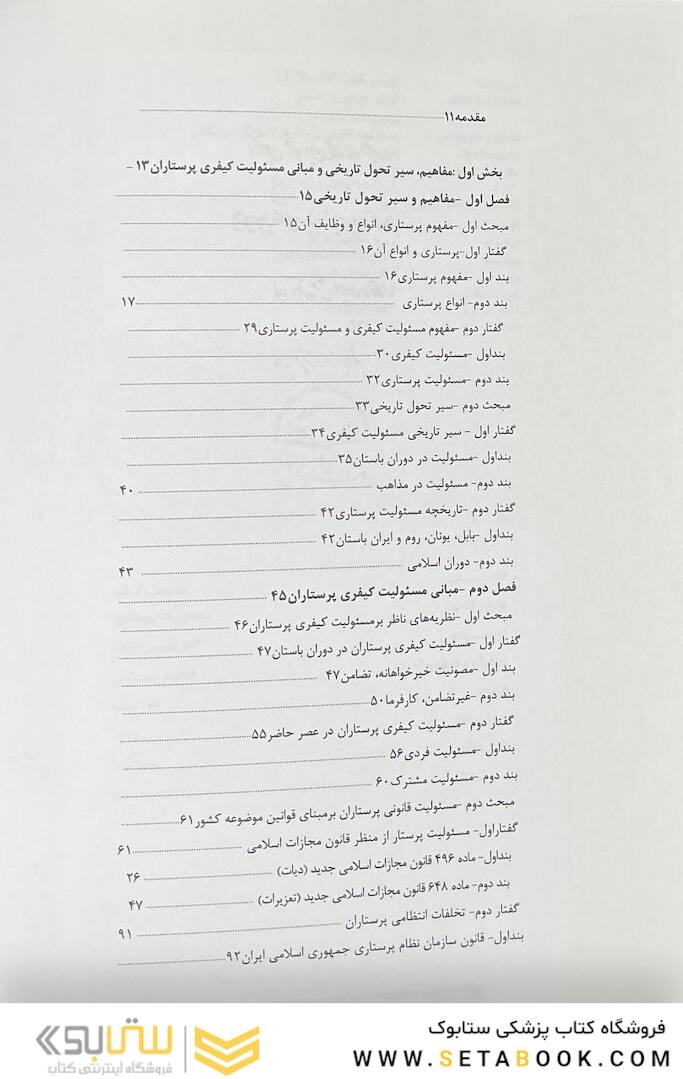 مقدمه۱۱
بخش اول :مفاهیم، سیر تحول تاریخی و مبانی مسئولیت کیفری پرستاران۱۳–
فصل اول -مفاهیم و سیر تحول تاریخی۱۵
مبحث اول -مفهوم پرستاری، انواع و وظایف آن۱۵
گفتار اول-پرستاری و انواع آن۱۶
بند اول -مفهوم پرستاری۱۶
بند دوم- انواع پرستاری ۱۷
گفتار دوم -مفهوم مسئولیت کیفری و مسئولیت پرستاری۲۹
بنداول -مسئولیت کیفری۳۰
بند دوم -مسئولیت پرستاری۳۲
مبحث دوم -سیر تحول تاریخی۳۳
گفتار اول - سیر تاریخی مسئولیت کیفری۳۴
بنداول -مسئولیت در دوران باستان۳۵
بند دوم- مسئولیت در مذاهب ۴۰
گفتار دوم -تاریخچه مسئولیت پرستاری۴۲
بنداول -بابل، یونان، روم و ایران باستان۴۲
بند دوم- دوران اسلامی ۴۳
فصل دوم -مبانی مسئولیت کیفری پرستاران۴۵
مبحث اول -نظریه‌های ناظر برمسئولیت کیفری پرستاران۴۶
گفتار اول -مسئولیت کیفری پرستاران در دوران باستان۴۷
بند اول -مصونیت خیرخواهانه، تضامن۴۷
بند دوم -غیرتضامن، کارفرما۵۰
گفتار دوم -مسئولیت کیفری پرستاران در عصر حاضر۵۵
بنداول -مسئولیت فردی۵۶
بند دوم -مسئولیت مشترک۶۰
مبحث دوم -مسئولیت قانونی پرستاران برمبنای قوانین موضوعه کشور۶۱
گفتاراول- مسئولیت پرستار از منظر قانون مجازات اسلامی ۶۱
بنداول- ماده ۴۹۶ قانون مجازات اسلامی جدید (دیات) ۲۶
بند دوم- ماده ۶۴۸ قانون مجازات اسلامی جدید (تعزیرات) ۴۷
گفتار دوم- تخلفات انتظامی پرستاران ۹۱
بنداول- قانون سازمان نظام پرستاری جمهوری اسلامی ایران۹۲
فروشگاه کتاب پزشکی ستابوک
WWW.SETABOOK.COM
ستابوک
فروشگاه اینترنتی کتاب